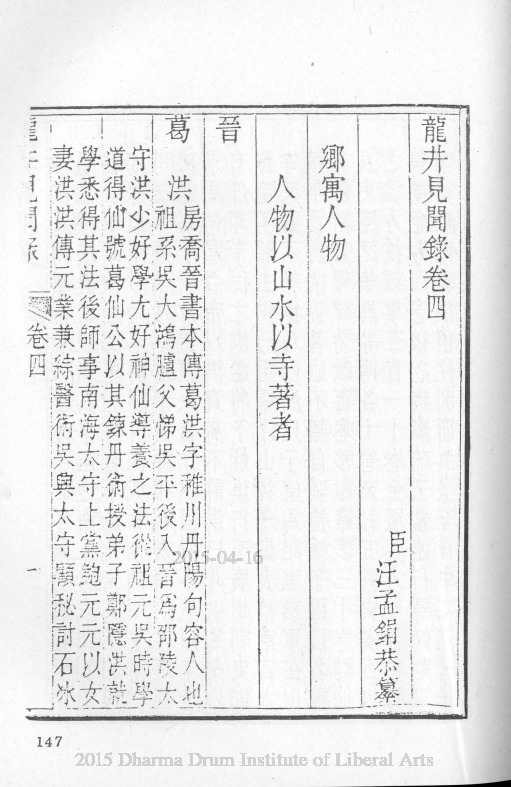 龍井見聞錄卷四
臣汪孟鋗恭纂
鄉寓人物
人物以山水以寺著者
晉
葛洪
房喬晉書本傳葛洪字稚川丹陽句容人也
祖系吳大鴻臚父悌吳平後入晉爲邵陵太
守洪少好學尤好神仙導養之法從祖元吳時學
道得仙號葛仙公以其鍊丹術授弟子鄭隱洪就
學悉得其法後師事南海太守上黨鮑元元以女
妻洪洪傳元業兼綜醫術吳興太守顧秘討石冰
龍井見聞錄
卷四
一
147
2015-04-16
2015 Dharma Drum Institute of Liberal Arts